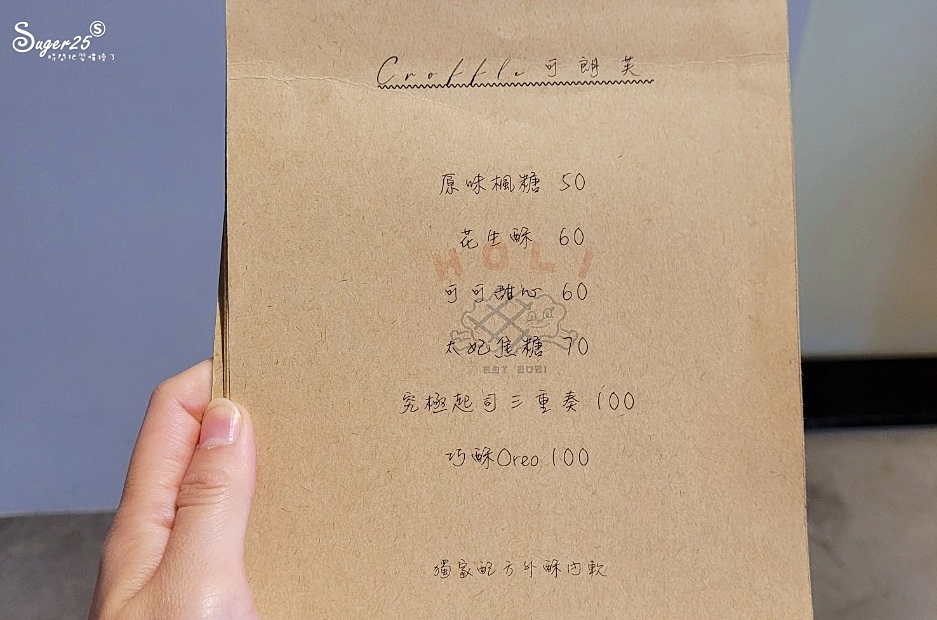 Suger25 S
時間把習慣換了
Croffle 可朗芙
原味楓糖 50
花生酥 60
HOLI
可可甜心 60
太妃焦糖 70
EST 2021
究極起司三重奏 100
巧酥Oreo 100
獨家配方外酥內軟